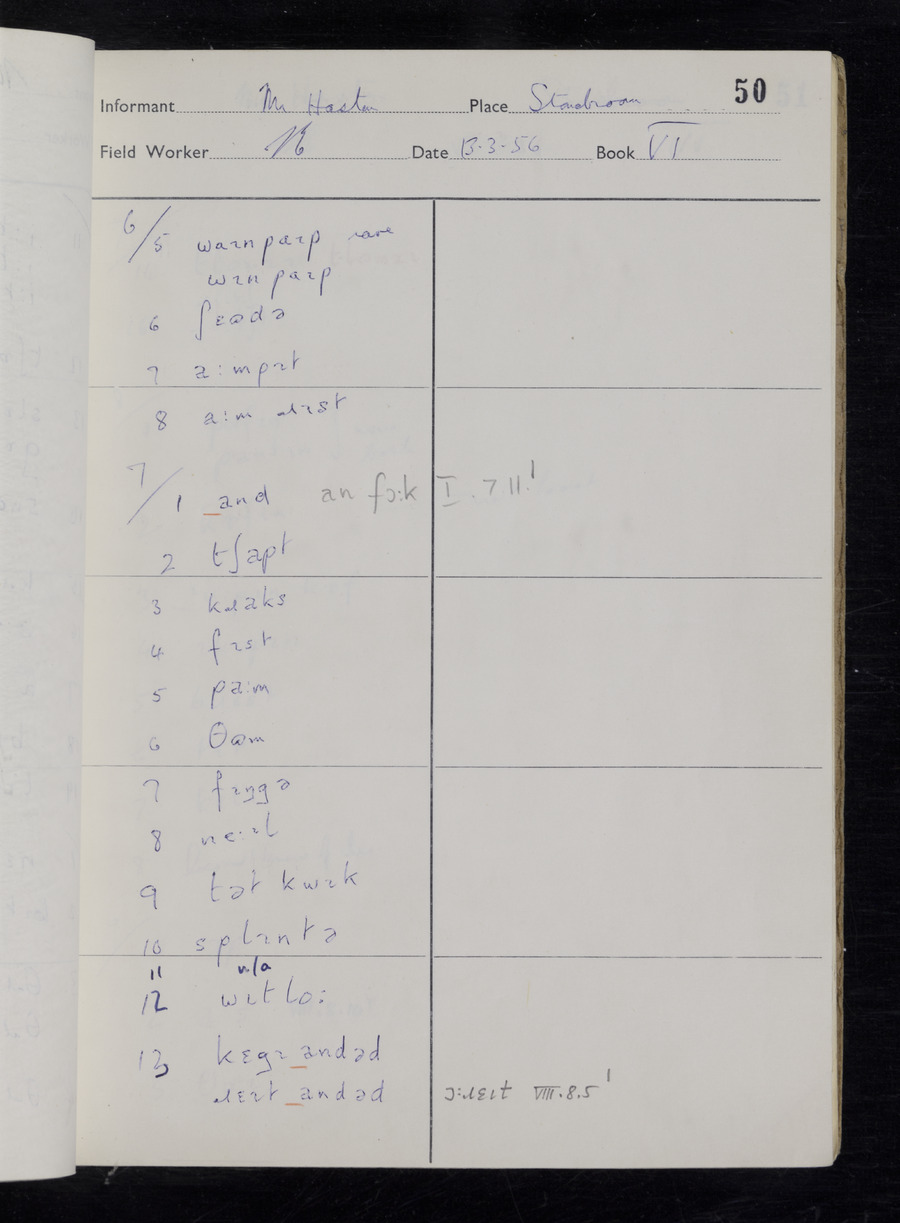 50
Informant Mr Place
Field Worker Date 13-3-56 Book VI
6/5 waɪnpaɪp rare
wɪnpaɪp
6 ʃɛədə
7 a:mpɪt
8 a:m ɹɪst
7/1 _and an fɔ:k I.7.11.'
2 tʃapt
3 kɹaks
4 fɪst
5 pa:m
6 θəm
7 fɪŋgə
8 ne:ɪl
9 tət kwɪk
10 splɪntə
11 n/a
12 wɪtlo:
13 kɛgɪ _andəd
ɹɛɪt _andəd ɔ:ɹɛɪt VIII.8.5'